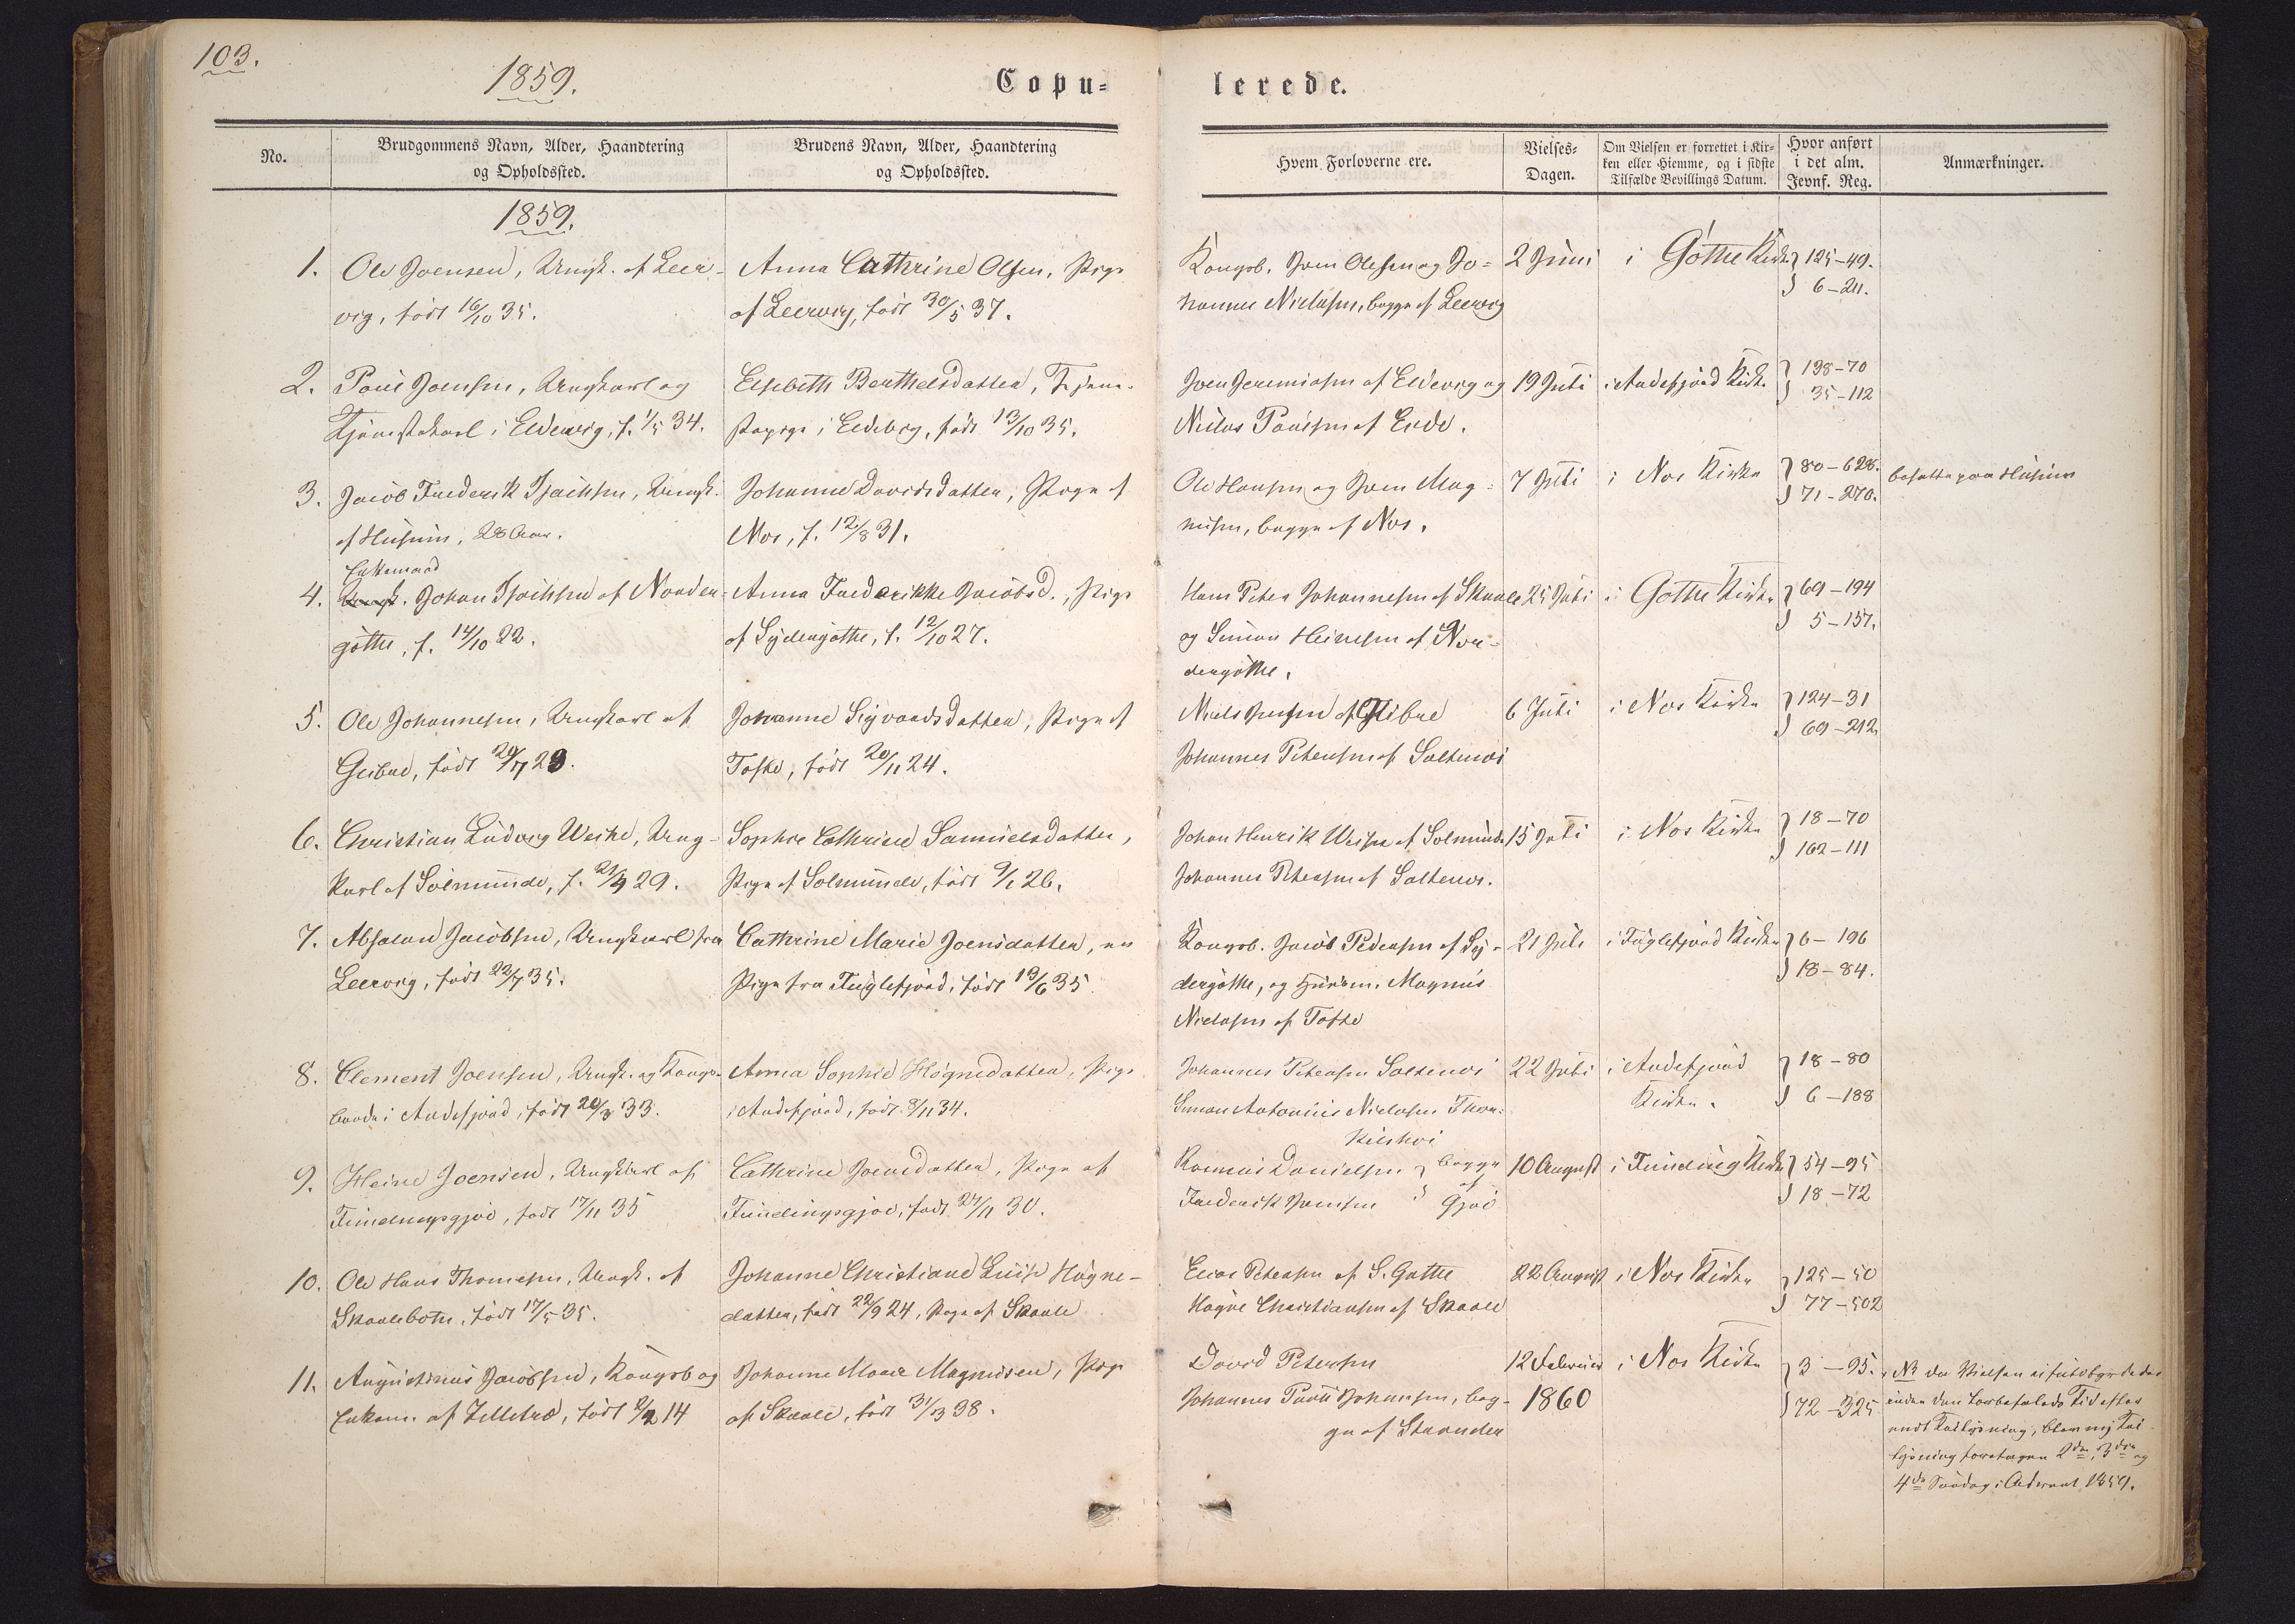 103.
1859.
Copu=
lerede.
No.
Brudgommens Navn, Alder, Haandtering
og Opholdssted.
Brudens Navn, Alder, Haandtering
og Opholdssted.
Hvem Forloverne ere.
Vielses-
Dagen.
Om Vielsen er forrettet i Kir-
ken eller Hiemme, og i sidste
Tilfælde Bevillings Datum.
Hvor anført
i det alm.
Jevnf. Reg.
Anmærkninger.
1859.
1.
Ole Joensen, Ungk. af Leer-
vig, født 16/10 35.
Anna Cathrine Olsen, Pige
af Leervig, født 30/5 37.
Kongsb. Joen Olesen og Jo-
hannes Niclasen, begge af Leervig
2 Juni
i Göthe Kirke
125-49.
6-211.
2.
Poul Joensen, Ungkarl og
Tjenestekarl i Eldevig, f. 1/5 34.
Elsebeth Berthelsdatter, Tjene-
stepige i Eldevig, født 13/10 35.
Joen Jeremiasen af Eldevig og
Niclas Poulsen af Ende.
19 Juli
i Andefjord Kirke
138-70
35-112
3.
Jacob Frederik Isachsen, Ungk.
af Husum, 28 Aar.
Johanne Davidsdatter, Pige af
Nos, f. 12/8 31.
Ole Hansen og Joen Mag-
nusen, begge af Nos.
7 Juli
i Nos Kirke
80-628.
71-270.
bosatte paa Husum
4.
Enkemand
Ungk. Johan Isachsen af Norder-
göthe, f. 14/10 22.
Anna Frederikke Jacobsd., Pige
af Sydergöthe, f. 12/10 27.
Hans Peter Johannesen af Skaale
og Simon Heinesen af Nor-
dergöthe.
25 Juli
i Göthe Kirke
69-194
5-157.
5.
Ole Johannesen, Ungkarl af
Glibre, født 20/7 29.
Johanne Sigvardsdatter, Pige af
Tofte, født 20/11 24.
Niels Jensen af Glibre
Johannes Petersen af Saltenes
6 Juli
i Nos Kirke
124-31
69-212.
6.
Christian Ludvig Weihe, Ung-
karl af Solmunde, f. 21/4 29.
Sophie Cathrine Samuelsdatter,
Pige af Solmunde, født 9/1 26.
Johan Henrik Weihe af Solmunde
Johannes Petersen af Saltenes.
15 Juli
i Nos Kirke
18-70
162-111
7.
Absalon Jacobsen, Ungkarl fra
Leervig, født 22/7 35.
Cathrine Marie Joensdatter, en
Pige fra Fuglefjord, født 19/6 35
Kongsb. Jacob Pedersen af Sy-
dergöthe, og Huusm. Magnus
Niclasen af Tofte
21 Juli
i Fuglefjord Kirke
6-196
18-84.
8.
Clement Joensen, Ungk. og Kongs-
bonde i Andefjord, født 20/3 33.
Anna Sophie Høgnedatter, Pige
i Andefjord, født 8/11 34.
Johannes Petersen Saltenes
Simon Antonius Niclasen
22 Juli
i Andefjord
Kirke.
18-80
6-188
9.
Heine Joensen, Ungkarl af
Fundingsgjov, født 17/11 35
Cathrine Joensdatter, Pige af
Fundingsgjov, født 27/11 30.
Rasmus Danielsen
Frederik Joensen
begge
af
Gjov
10 August
i Funding Kirke
54-95
18-72
10.
Ole Hans Thomesen, Ungk. af
Skaalebotn, født 17/5 35.
Johanne Christiane Luise Høgne-
datter, født 22/9 24, Pige af Skaale
Elias Petersen af S. Gøthe
Høgne Christiansen af Skaale
22 August
i Nos Kirke
125-50
77-502
11.
Augustinus Jacobsen, Kongsb og
Enkem. af Zelletræ, født 2/2 14
Johanne Marie Magnusen, Pige
af Skaale, født 31/3 38.
David Petersen
Johannes Poul Johansen, beg-
ge af Strender
12 Februar
1860
i Nos Kirke
3-95.
72-325
NB da Vielsen ei fuldbyrdedes
inden den foreskrevne Tid efter
endt Tillysning, blev ny Til-
lysning foretagen 2den, 3die og
4de Søndag i Advent 1859.